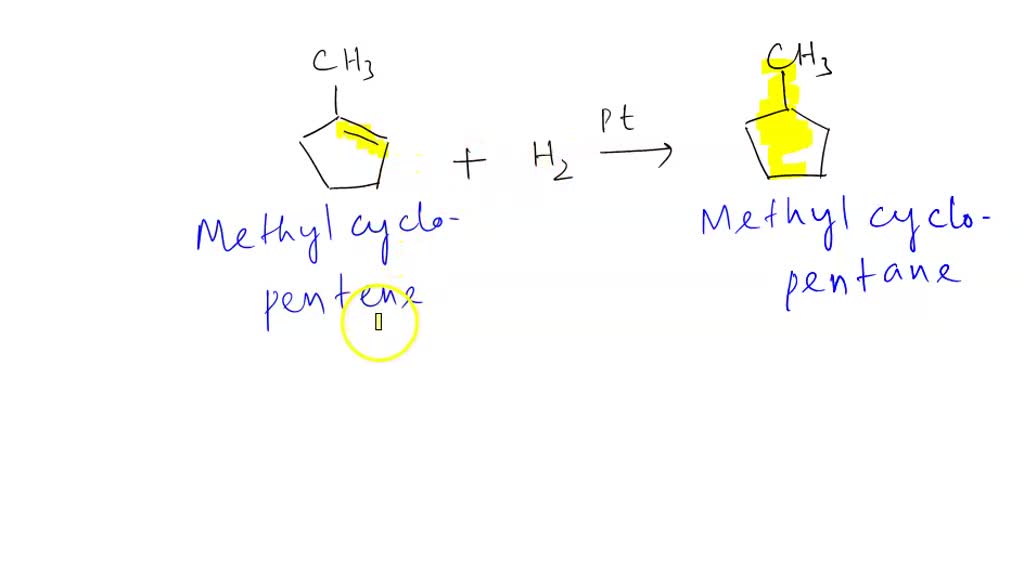 CH3
CH3
+ H2 Pt
Methyl cyclo-
pentene
Methyl cyclo-
pentane